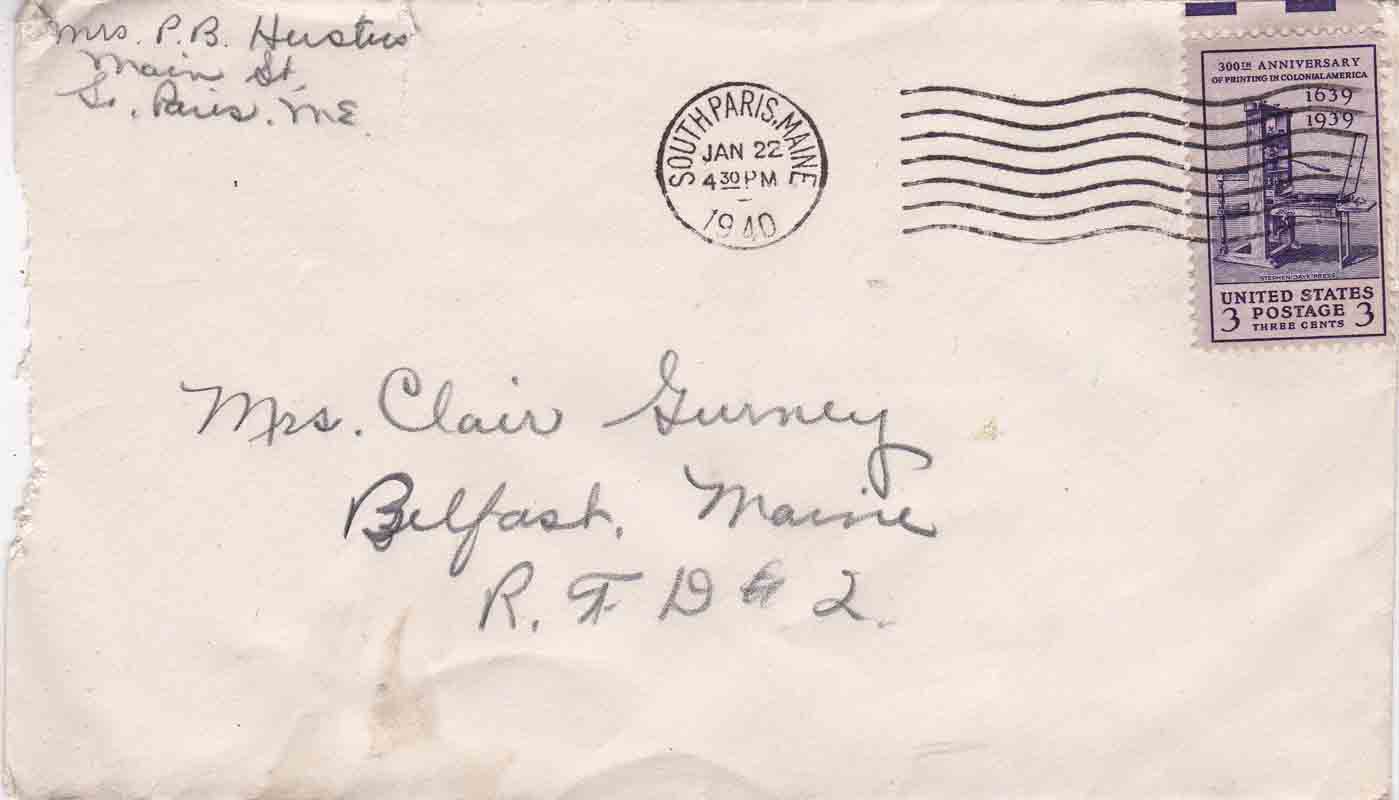 Mrs. P.B. Hustus
Main St.
So. Paris. ME.
SOUTH PARIS, MAINE
JAN 22
4 30 PM
1940
300TH ANNIVERSARY
OF PRINTING IN COLONIAL AMERICA
1639
1939
STEPHEN DAYE PRESS
UNITED STATES
3 POSTAGE 3
THREE CENTS
Mrs. Clair Gurney
Belfast, Maine
R. F D # 2.